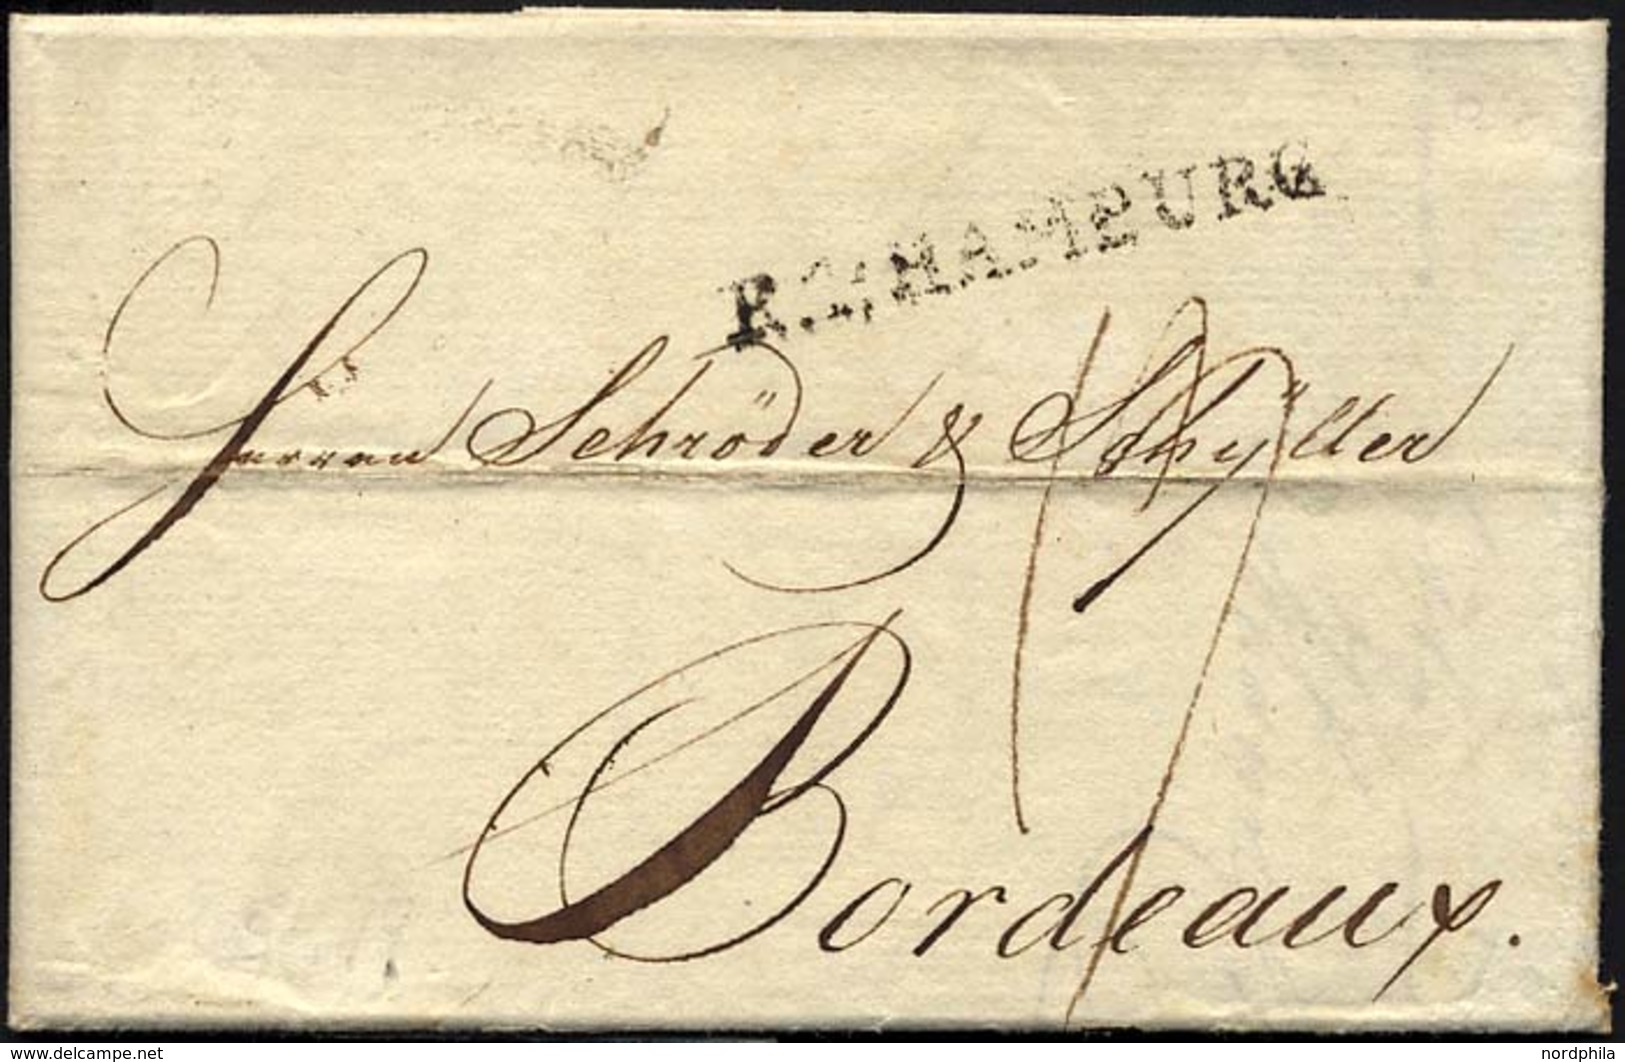 R.2.HAMBURG
Herren Schröder & Schÿller
17
Bordeaux.
www.delcampe.net
nordphila